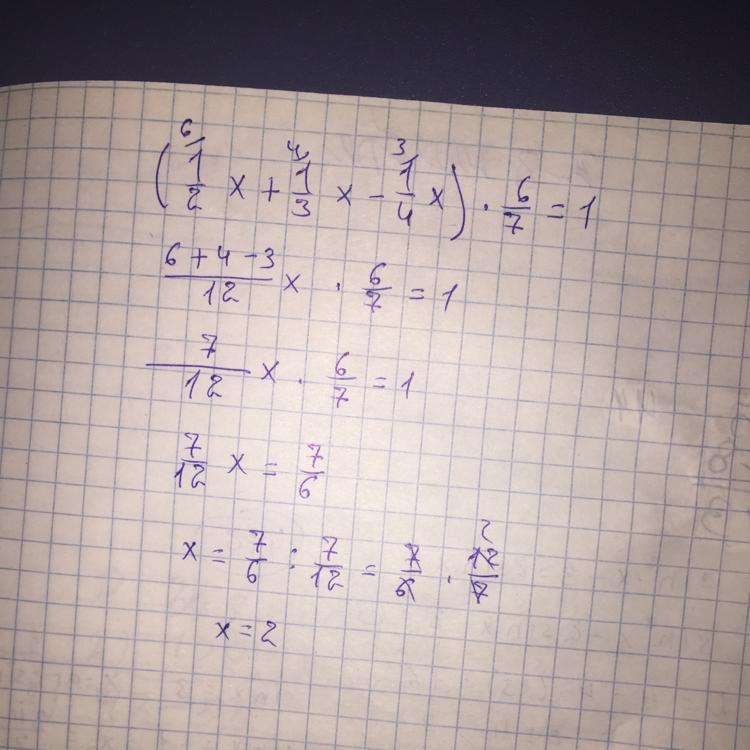 (⁶⁄1/2 x + ⁴⁄1/3 x − ³⁄1/4 x) · 6/7 = 1
(6 + 4 − 3)/12 x · 6/7 = 1
7/12 x · 6/7 = 1
7/12 x = 7/6
x = 7/6 : 7/12 = 7/6 · 12/7 2
x = 2